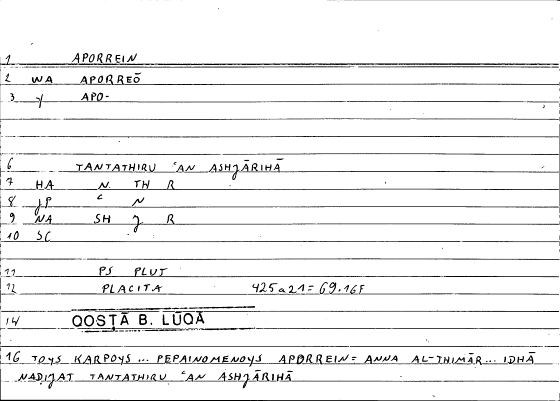 1 APORREIN
2 WA APORREŌ
3 Y APO-
6 TANTATHIRU ʿAN ASHJĀRIHĀ
7 HA N TH R
8 JP ʿ N
9 NA SH J R
10 SC
11 PS PLUT
12 PLACITA 425a21=69.16F
14 QOSṬĀ B. LŪQĀ
16 TOYS KARPOYS ... PEPAINOMENOYS APORREIN = ANNA AL-THIMĀR... IDHĀ
NADIJAT TANTATHIRU ʿAN ASHJĀRIHĀ